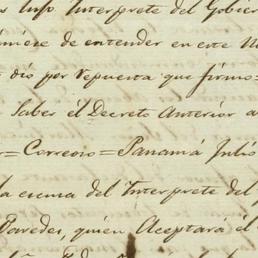 Interprete del Gobier
de entender en este
dio por repuesta que firmo=
Saber el Decreto Anterior a
=Correoso=Panamá Julio
la escusa del Interprete del
Paredes, quien Aceptará el